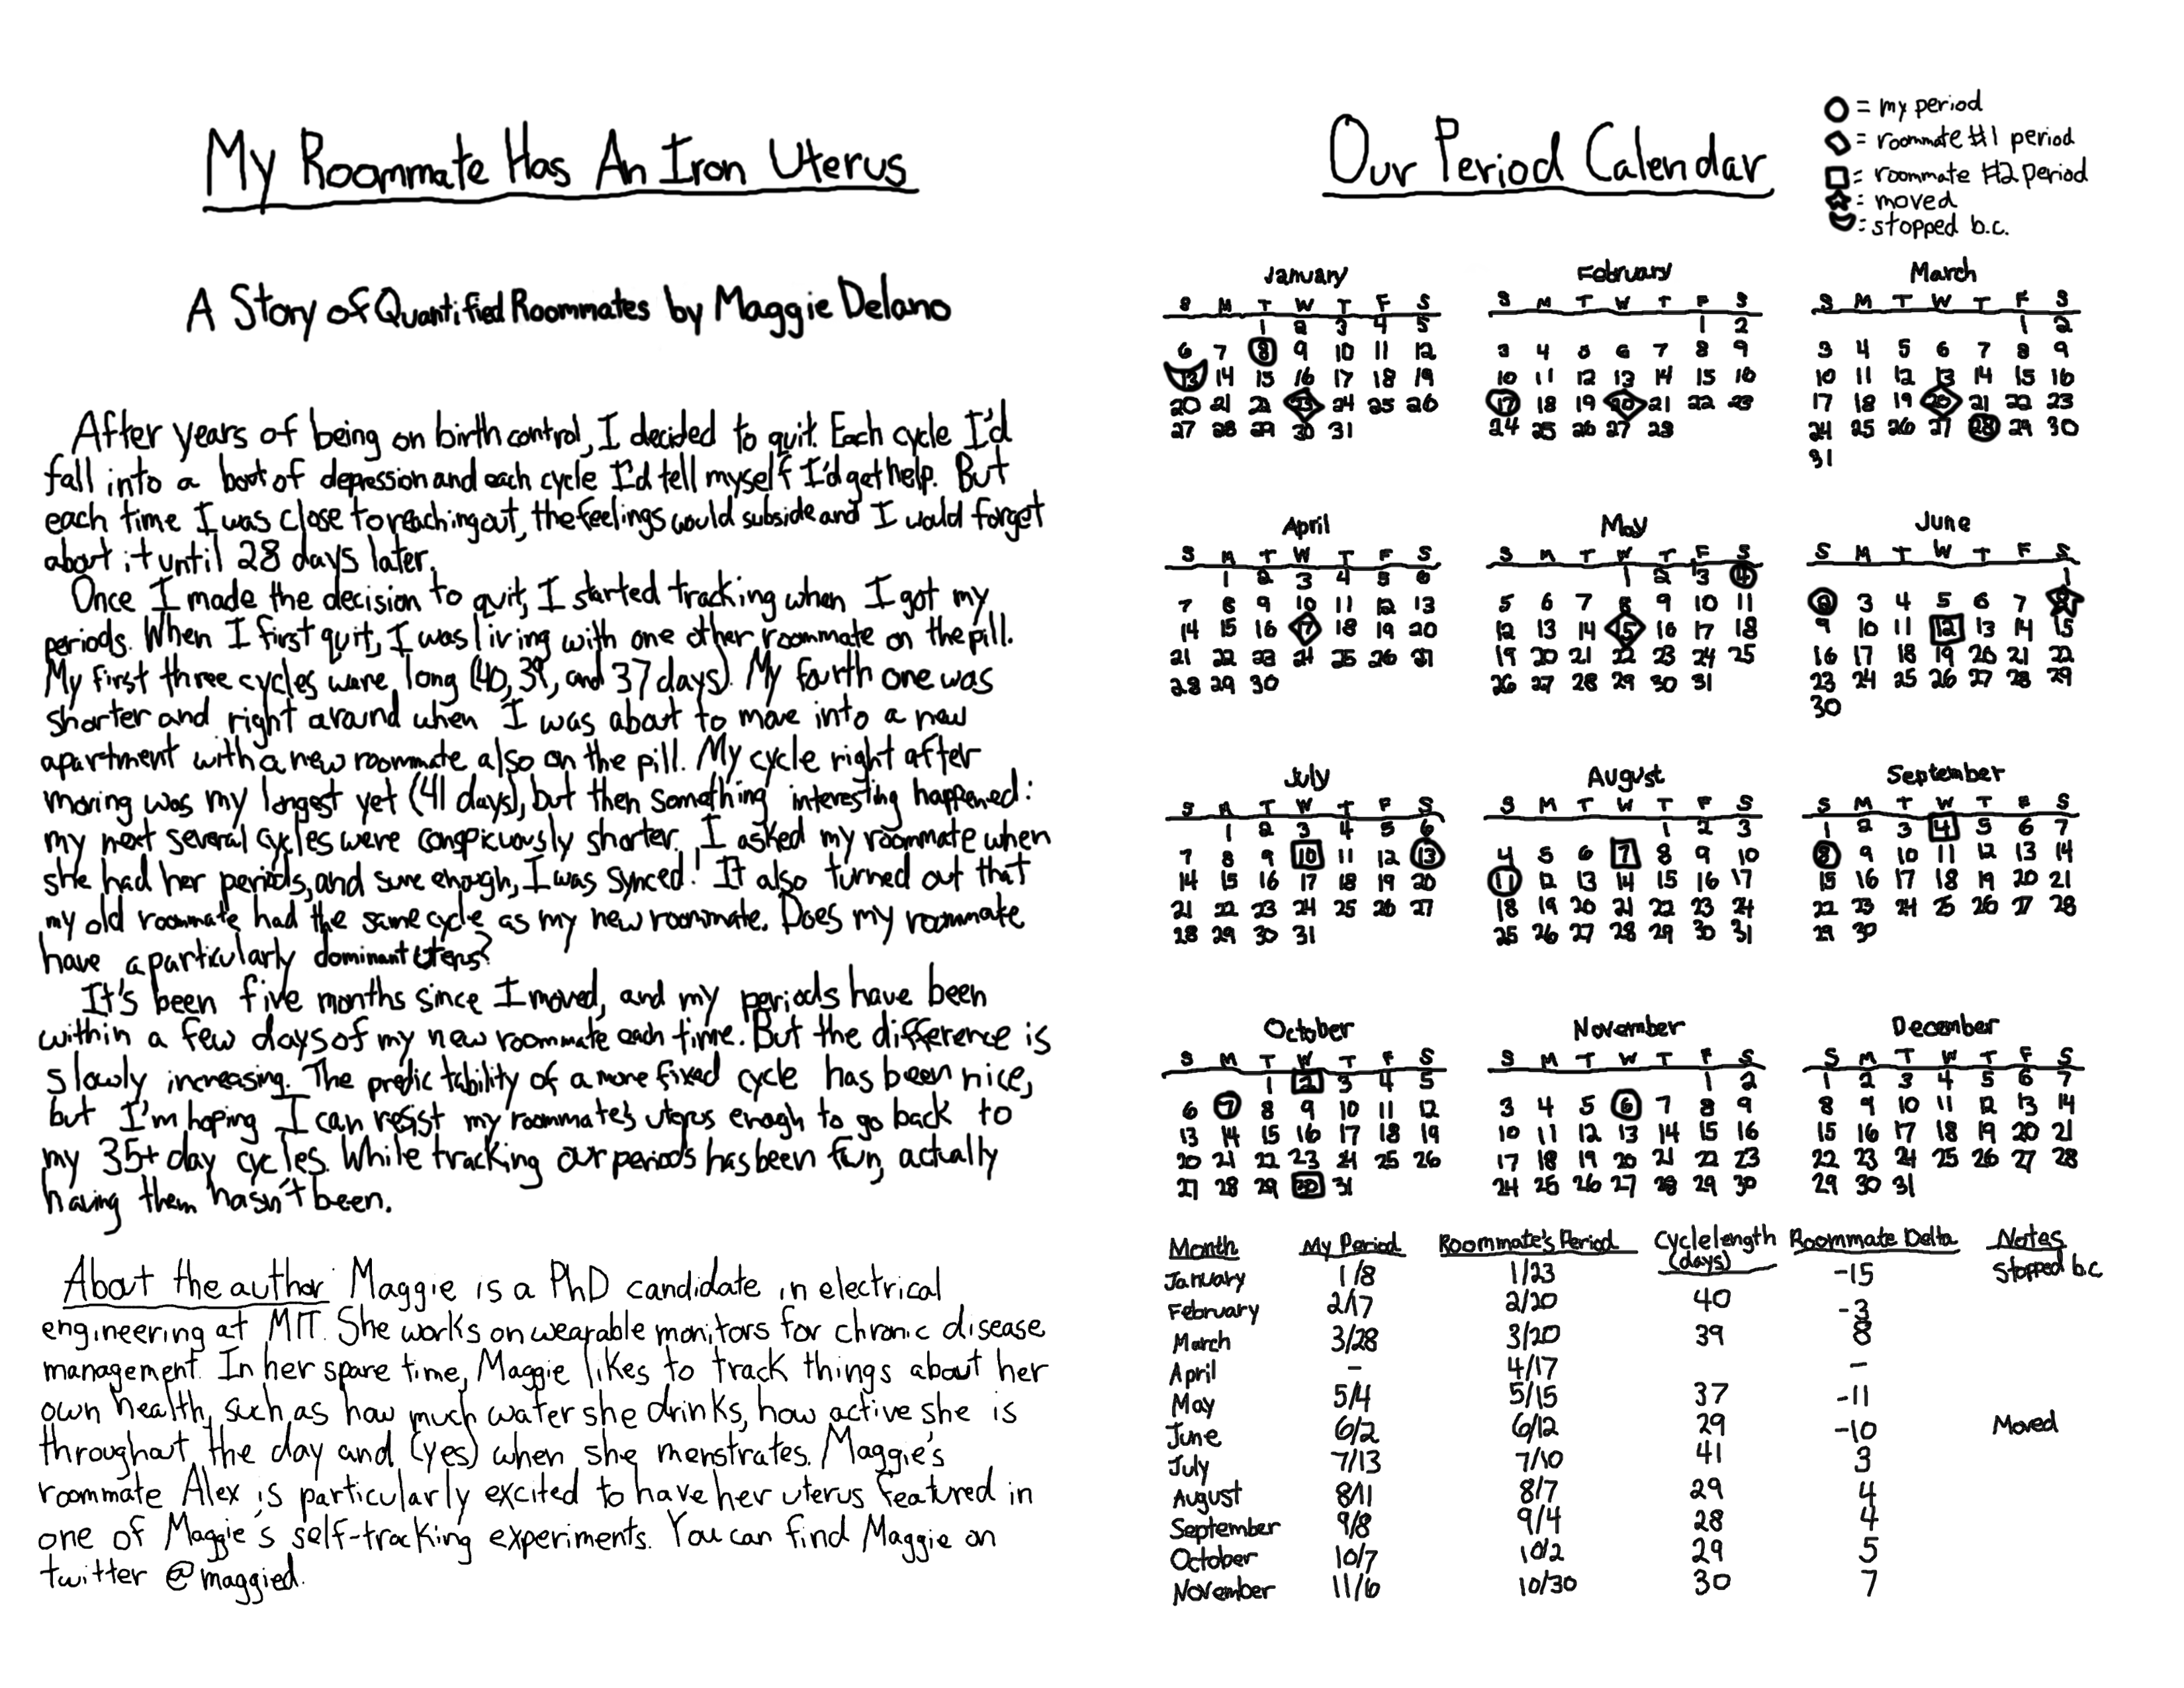 My Roommate Has An Iron Uterus
A Story of Quantified Roommates by Maggie Delano
After years of being on birth control, I decided to quit. Each cycle I'd
fall into a bout of depression and each cycle I'd tell myself I'd get help. But
each time I was close to reaching out, the feelings would subside and I would forget
about it until 28 days later.
Once I made the decision to quit, I started tracking when I got my
periods. When I first quit, I was living with one other roommate on the pill.
My first three cycles were long (40, 39, and 37 days). My fourth one was
shorter and right around when I was about to move into a new
apartment with a new roommate also on the pill. My cycle right after
moving was my longest yet (41 days), but then something interesting happened:
my next several cycles were conspicuously shorter. I asked my roommate when
she had her periods, and sure enough, I was synced! It also turned out that
my old roommate had the same cycle as my new roommate. Does my roommate
have a particularly dominant uterus?
It's been five months since I moved, and my periods have been
within a few days of my new roommate each time. But the difference is
slowly increasing. The predictability of a more fixed cycle has been nice,
but I'm hoping I can resist my roommate's uterus enogh to go back to
my 35+ day cycles. While tracking our periods has been fun, actually
having them hasn't been.
About the author: Maggie is a PhD candidate in electrical
engineering at MIT. She works on wearable monitors for chronic disease
management. In her spare time, Maggie likes to track things about her
own health, such as how much water she drinks, how active she is
throughout the day and (yes) when she menstrates. Maggie's
roommate Alex is particularly excited to have her uterus featured in
one of Maggie's self-tracking experiments. You can find Maggie on
twitter @maggied.
Our Period Calendar
= my period
= roommate #1 period
= roommate #2 period
= moved
= stopped b.c.
January
S M T W T F S
1 2 3 4 5
6 7 8 9 10 11 12
13 14 15 16 17 18 19
20 21 22 23 24 25 26
27 28 29 30 31
February
S M T W T F S
1 2
3 4 5 6 7 8 9
10 11 12 13 14 15 16
17 18 19 20 21 22 23
24 25 26 27 28
March
S M T W T F S
1 2
3 4 5 6 7 8 9
10 11 12 13 14 15 16
17 18 19 20 21 22 23
24 25 26 27 28 29 30
31
April
S M T W T F S
1 2 3 4 5 6
7 8 9 10 11 12 13
14 15 16 17 18 19 20
21 22 23 24 25 26 27
28 29 30
May
S M T W T F S
1 2 3 4
5 6 7 8 9 10 11
12 13 14 15 16 17 18
19 20 21 22 23 24 25
26 27 28 29 30 31
June
S M T W T F S
1
2 3 4 5 6 7 8
9 10 11 12 13 14 15
16 17 18 19 20 21 22
23 24 25 26 27 28 29
30
July
S M T W T F S
1 2 3 4 5 6
7 8 9 10 11 12 13
14 15 16 17 18 19 20
21 22 23 24 25 26 27
28 29 30 31
August
S M T W T F S
1 2 3
4 5 6 7 8 9 10
11 12 13 14 15 16 17
18 19 20 21 22 23 24
25 26 27 28 29 30 31
September
S M T W T F S
1 2 3 4 5 6 7
8 9 10 11 12 13 14
15 16 17 18 19 20 21
22 23 24 25 26 27 28
29 30
October
S M T W T F S
1 2 3 4 5
6 7 8 9 10 11 12
13 14 15 16 17 18 19
20 21 22 23 24 25 26
27 28 29 30 31
November
S M T W T F S
1 2
3 4 5 6 7 8 9
10 11 12 13 14 15 16
17 18 19 20 21 22 23
24 25 26 27 28 29 30
December
S M T W T F S
1 2 3 4 5 6 7
8 9 10 11 12 13 14
15 16 17 18 19 20 21
22 23 24 25 26 27 28
29 30 31
Month My Period Roommate's Period Cycle length (days) Roommate Delta Notes
January 1/8 1/23 -15 Stopped b.c
February 2/17 2/20 40 -3
March 3/28 3/20 39 8
April - 4/17 -
May 5/4 5/15 37 -11
June 6/2 6/12 29 -10 Moved
July 7/13 7/10 41 3
August 8/11 8/7 29 4
September 9/8 9/4 28 4
October 10/7 10/2 29 5
November 11/6 10/30 30 7